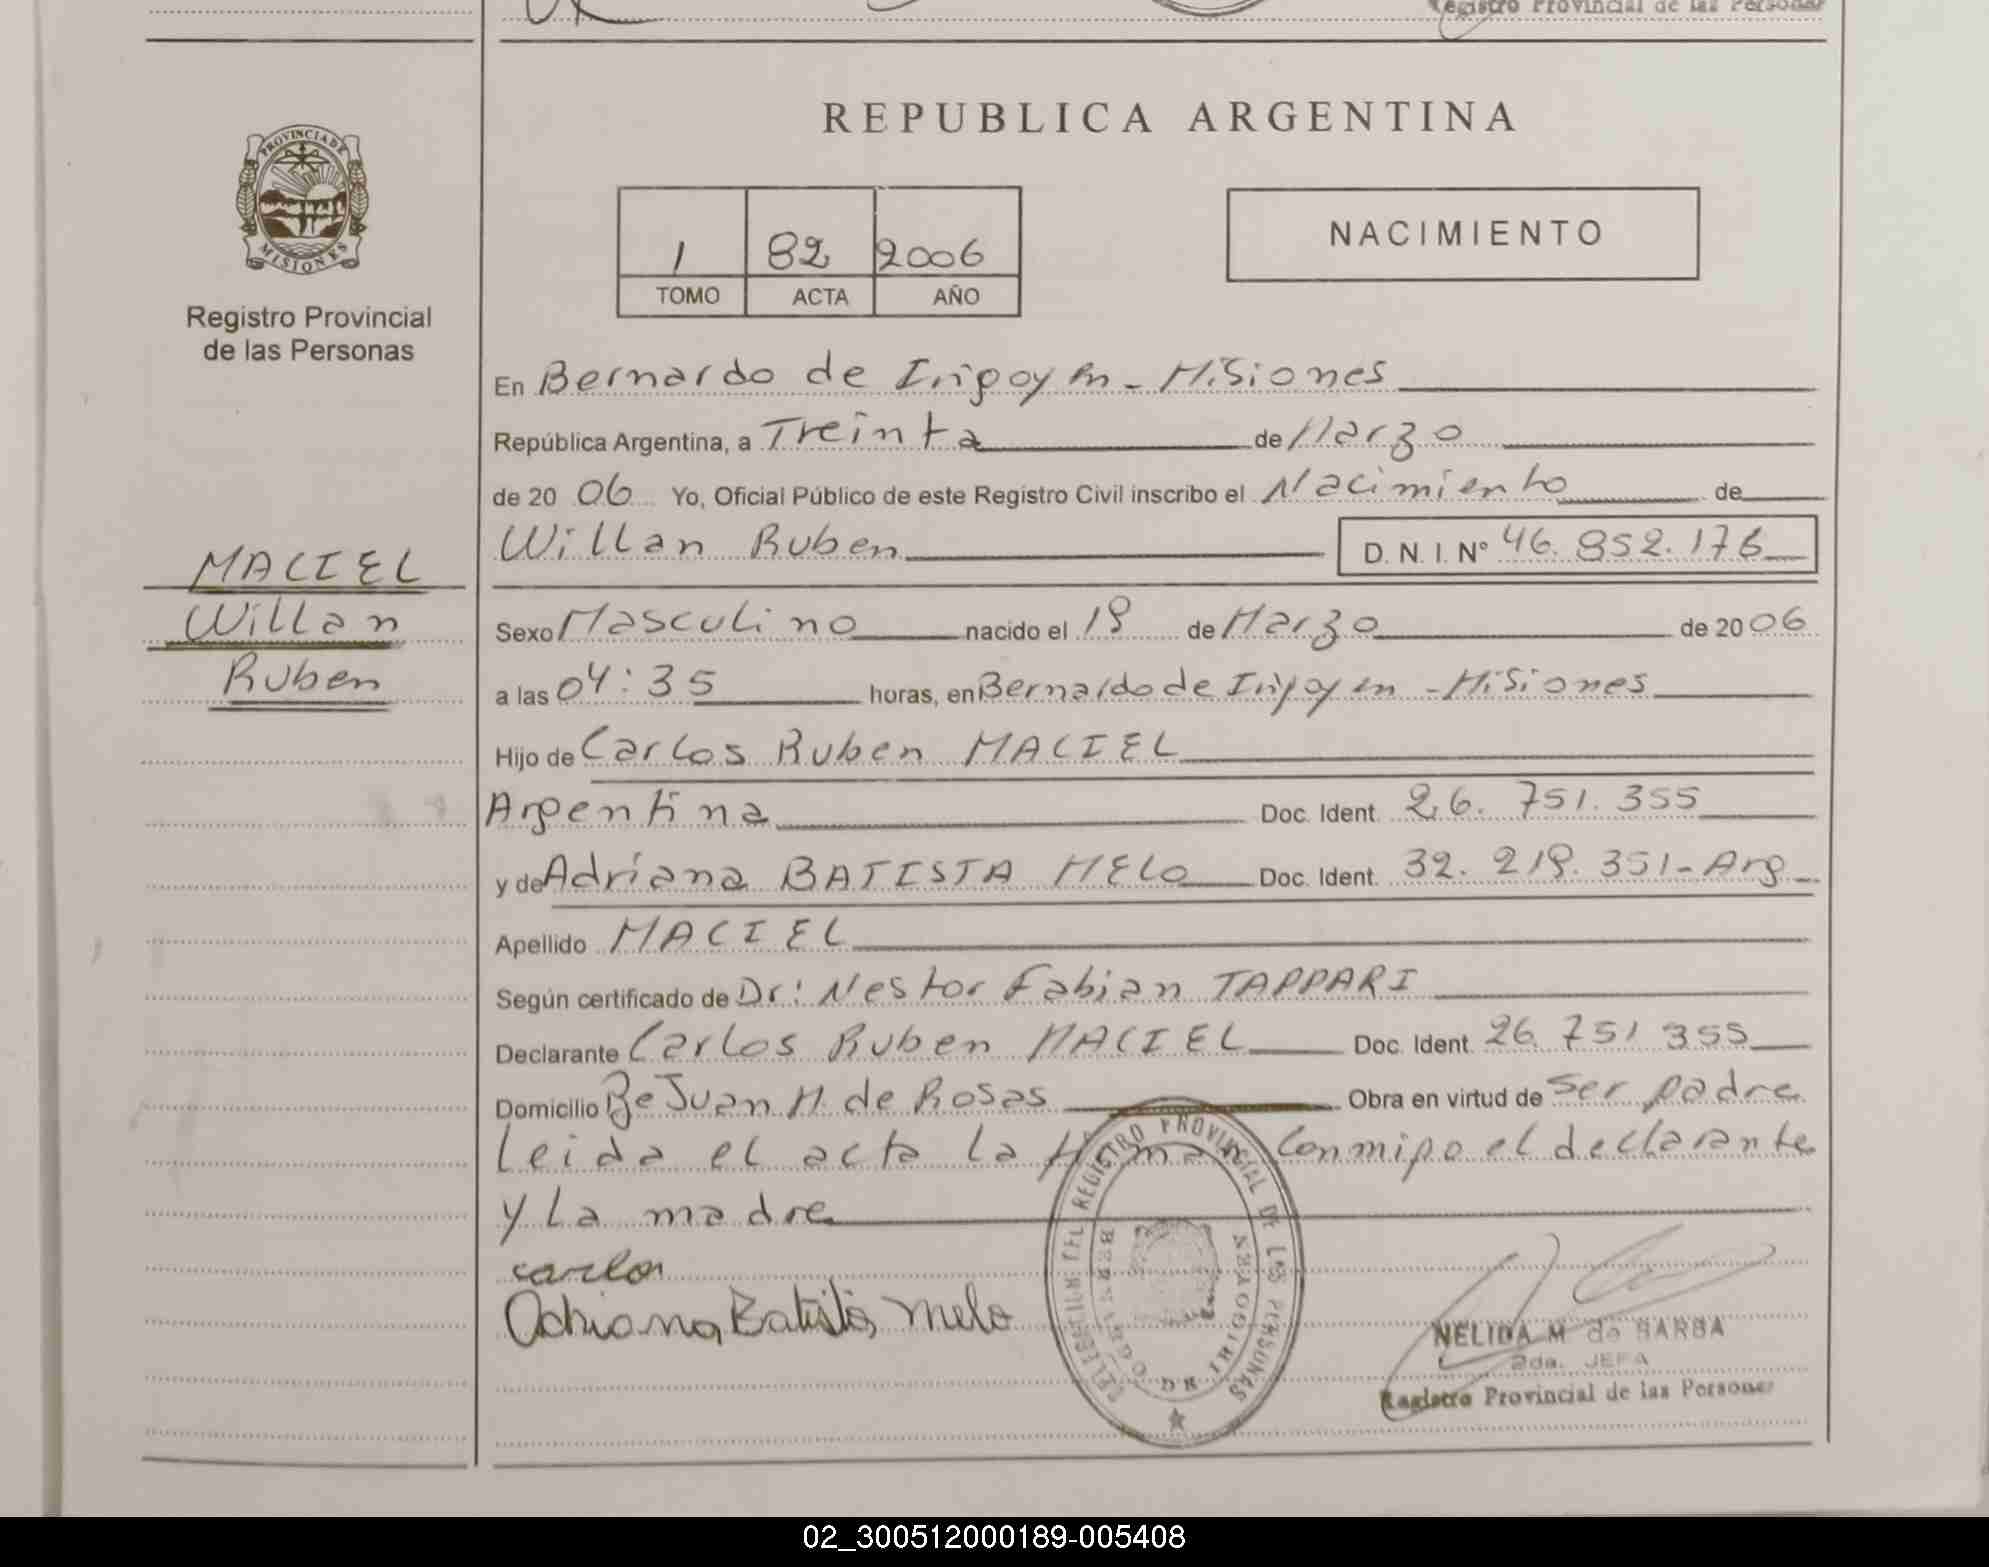 Registro Provincial de las Personas
REPUBLICA ARGENTINA
PROVINCIA DE
MISIONES
Registro Provincial
de las Personas
1 82 2006
TOMO ACTA AÑO
NACIMIENTO
En Bernardo de Irigoyen - Misiones
República Argentina, a Treinta de Marzo
de 20 06 Yo, Oficial Público de este Registro Civil inscribo el Nacimiento de
Willan Ruben D. N. I. Nº 46.852.176
MACIEL
Willan
Ruben
Sexo Masculino nacido el 18 de Marzo de 20 06
a las 04:35 horas, en Bernardo de Irigoyen - Misiones
Hijo de Carlos Ruben MACIEL
Argentina Doc. Ident. 26.751.355
y de Adriana BATISTA MELO Doc. Ident. 32.218.351 - Arg
Apellido MACIEL
Según certificado de Dr: Nestor Fabian TAPPARI
Declarante Carlos Ruben MACIEL Doc. Ident. 26 751 355
Domicilio Bº Juan M. de Rosas Obra en virtud de ser padre
Leida el acta la firman conmigo el declarante
y La madre
carlos
Adriana Batista Melo
REGISTRO PROVINCIAL DE LAS PERSONAS
BERNARDO DE IRIGOYEN
NELIDA M. de BARBA
2da. JEFA
Registro Provincial de las Personas
02_300512000189-005408